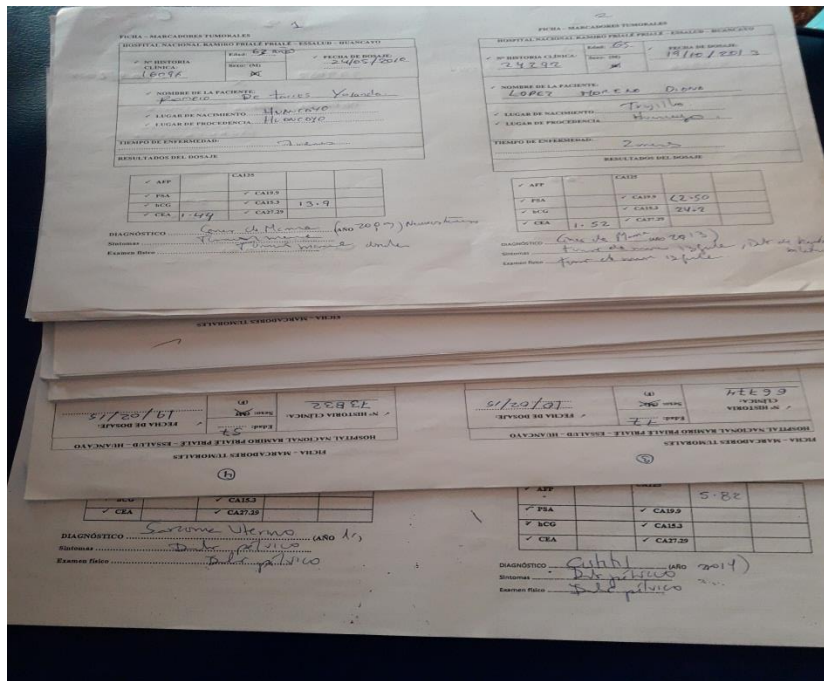 1
FICHA - MARCADORES TUMORALES
HOSPITAL NACIONAL RAMIRO PRIALÉ PRIALÉ - ESSALUD - HUANCAYO
✓ Nº HISTORIA CLÍNICA:
Edad: 62 años
Sexo: (M)
✓ FECHA DE DOSAJE:
24/05/2010
✓ NOMBRE DE LA PACIENTE:
De Torres Yolanda
✓ LUGAR DE NACIMIENTO Huancayo
✓ LUGAR DE PROCEDENCIA Huancayo
TIEMPO DE ENFERMEDAD:
RESULTADOS DEL DOSAJE
✓ AFP CA125
✓ PSA ✓ CA19.9
✓ hCG ✓ CA15.3 13.9
✓ CEA 1.49 ✓ CA27.29
DIAGNÓSTICO Cancer de Mama (AÑO 2009)
Síntomas
Examen físico
2
FICHA - MARCADORES TUMORALES
HOSPITAL NACIONAL RAMIRO PRIALÉ PRIALÉ - ESSALUD - HUANCAYO
✓ Nº HISTORIA CLÍNICA:
24292
Edad: 65
Sexo: (M)
✓ FECHA DE DOSAJE:
19/10/2013
✓ NOMBRE DE LA PACIENTE:
LOPEZ MORENO Diana
✓ LUGAR DE NACIMIENTO Trujillo
✓ LUGAR DE PROCEDENCIA Huancayo
TIEMPO DE ENFERMEDAD: 2 meses
RESULTADOS DEL DOSAJE
✓ AFP CA125
✓ PSA ✓ CA19.9 62.50
✓ hCG ✓ CA15.3 24.2
✓ CEA 1.52 ✓ CA27.29
DIAGNÓSTICO Cancer de Mama AÑO 2013)
Síntomas
Examen físico
FICHA - MARCADORES TUMORALES
3
FICHA - MARCADORES TUMORALES
HOSPITAL NACIONAL RAMIRO PRIALÉ PRIALÉ - ESSALUD - HUANCAYO
✓ Nº HISTORIA CLÍNICA:
66774
Edad: 77
Sexo: (M)
(F)
✓ FECHA DE DOSAJE:
10/02/15
4
FICHA - MARCADORES TUMORALES
HOSPITAL NACIONAL RAMIRO PRIALÉ PRIALÉ - ESSALUD - HUANCAYO
Nº HISTORIA CLÍNICA:
73832
Edad: 57
Sexo: (M)
(F)
✓ FECHA DE DOSAJE:
19/02/15
✓ hCG ✓ CA15.3
✓ CEA ✓ CA27.29
DIAGNÓSTICO Sarcoma Uterino (AÑO
Síntomas Dolor pélvico
Examen físico Dolor pélvico
✓ AFP CA125 5.82
✓ PSA ✓ CA19.9
✓ hCG ✓ CA15.3
✓ CEA ✓ CA27.29
DIAGNÓSTICO (AÑO 2014)
Síntomas Dolor pélvico
Examen físico Dolor pélvico